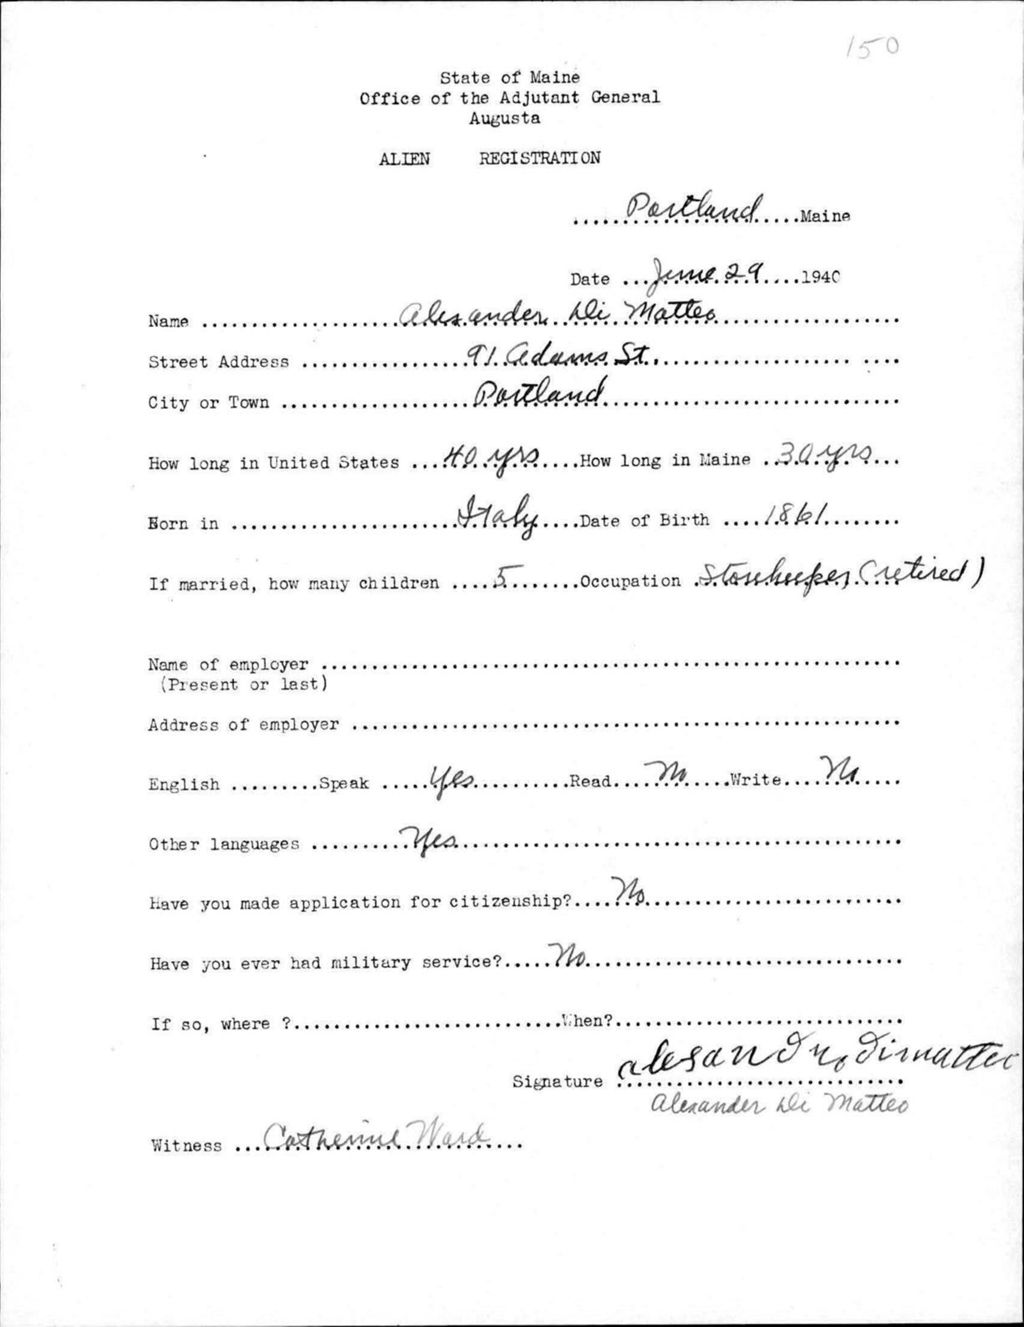 150
State of Maine
Office of the Adjutant General
Augusta
ALIEN REGISTRATION
.....Portland.....Maine
Date ...June 29....1940
Name ....................Alexander Di Matteo..................
Street Address .................91 Adams St....................... ....
City or Town ...................Portland..............................
How long in United States ...40 yrs....How long in Maine ..30 yrs...
Born in ......................Italy....Date of Birth ....1861........
If married, how many children ....5.......Occupation .Storekeeper, (retired)
Name of employer .........................................................
(Present or last)
Address of employer ......................................................
English .........Speak .....Yes..........Read....No.....Write....No.....
Other languages .........Yes............................................
Have you made application for citizenship?....No.........................
Have you ever had military service?.....No...............................
If so, where ?..........................When?.............................
alesandro dimatteo
Signature ............................
Alexander Di Matteo
Witness ...Catherine Ward....